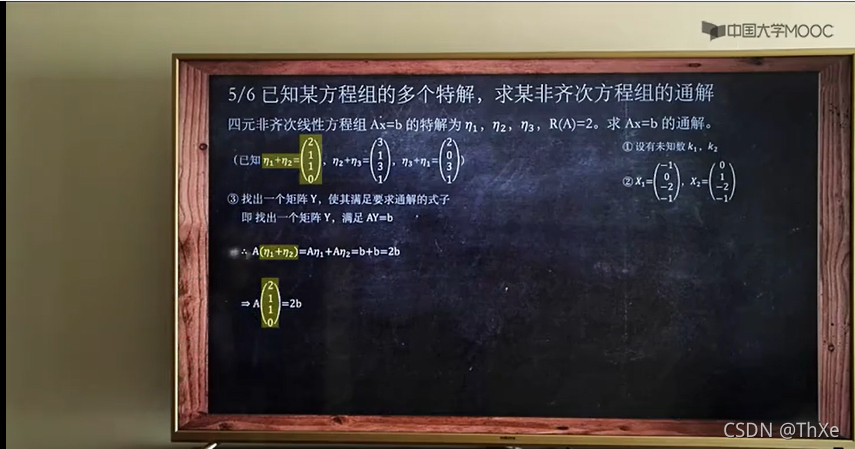 中国大学MOOC
5/6 已知某方程组的多个特解，求某非齐次方程组的通解
四元非齐次线性方程组 Ax=b 的特解为 η₁，η₂，η₃，R(A)=2。求 Ax=b 的通解。
(已知 η₁+η₂=(2 1 1 0)，η₂+η₃=(3 1 3 1)，η₃+η₁=(2 0 3 1))
① 设有未知数 k₁，k₂
② X₁=(-1 0 -2 -1)，X₂=(0 1 -2 -1)
③ 找出一个矩阵 Y，使其满足要求通解的式子
即 找出一个矩阵 Y，满足 AY=b
∴ A(η₁+η₂)=Aη₁+Aη₂=b+b=2b
⇒ A(2 1 1 0)=2b
CSDN @ThXe